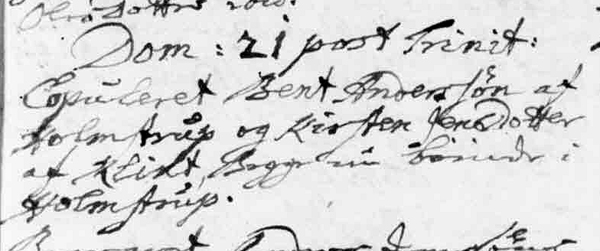 Olesdotter
Dom: 21 post Trinit:
Copuleret Bent Anderssøn af
Holmstrup og Kirsten Jensdotter
af Klint, Begge nu i
Holmstrup.